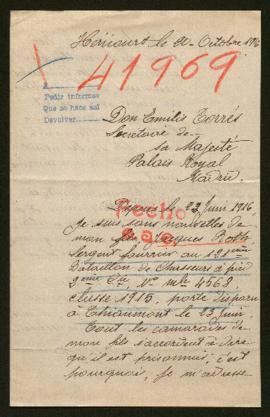 Héricourt le 20 Octobre 1916
41969
A
Pedir informes
Que se hace así
Devolver
Don Emilio Torres
Secrétaire de
sa Majesté
Palais Royal
Madrid.
Depuis le 23 Juin 1916,
Hecho
je suis sans nouvelles de
mon fils Jacques
Sergent fourrier au 121ème
Bataillon de Chasseurs à pied
9ème Cie, No mle 4568
classe 1915, porté disparu
à Thiaumont le 23 Juin.
Tout les camarades de
mon fils s'accordent à dire
qu'il est prisonnier; c'est
pourquoi, je m'adresse